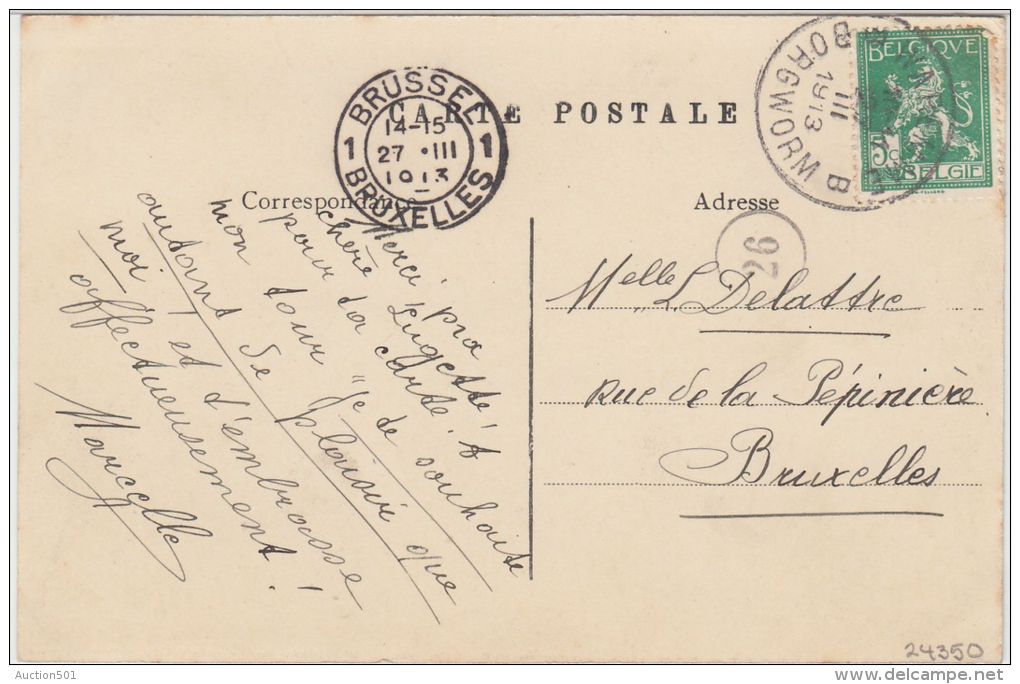 CARTE POSTALE
BRUSSEL
14-15
1 27 •III 1
1913
BRUXELLES
BORGWORM B
III
1913
BELGIQUE
5c
BELGIE
Correspondance
Adresse
26
Merci
chère
pour ta carte! &
mon tour je te souhaite
autant de plaisir que
moi et t'embrasse
affectueusement!
Marcelle
Melle L Delattre
Rue de la Pépinière
Bruxelles
24350
Auction501
www.delcampe.net